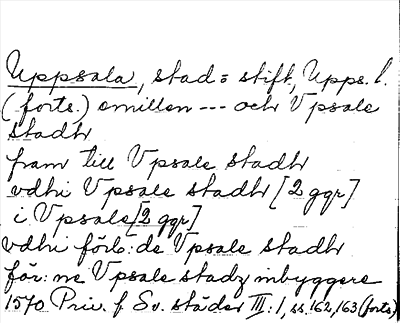 Uppsala, stad o stift, Upps. l.
(forts.) emillen --- och Vpsale
stadh
fram till Vpsale stadh
vdhi Vpsale stadh [2 ggr]
i Vpsale [2 ggr]
vdhi förb:de Vpsale stadh
för:ne Vpsale stadz inbyggere
1570 Priv. f Sv. städer III:1, ss. 162, 163 (forts)